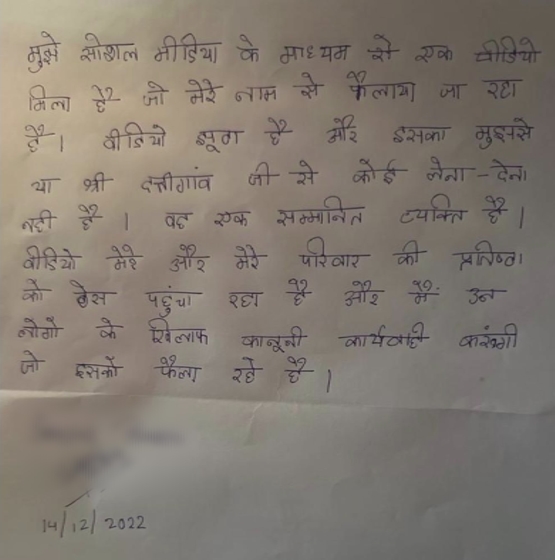 मुझे सोशल मीडिया के माध्यम से एक वीडियो
मिला है जो मेरे नाम से फैलाया जा रहा
है। वीडियो झूठा है और इसका मुझसे
या श्री दत्तीगांव जी से कोई लेना-देना
नही है। वह एक सम्मानित व्यक्ति है।
वीडियो मेरे और मेरे परिवार की प्रतिष्ठा
को ठेस पहुंचा रहा है और मैं उन
लोगों के खिलाफ कानूनी कार्यवाही करूंगी
जो इसको फैला रहे है।
14/12/2022